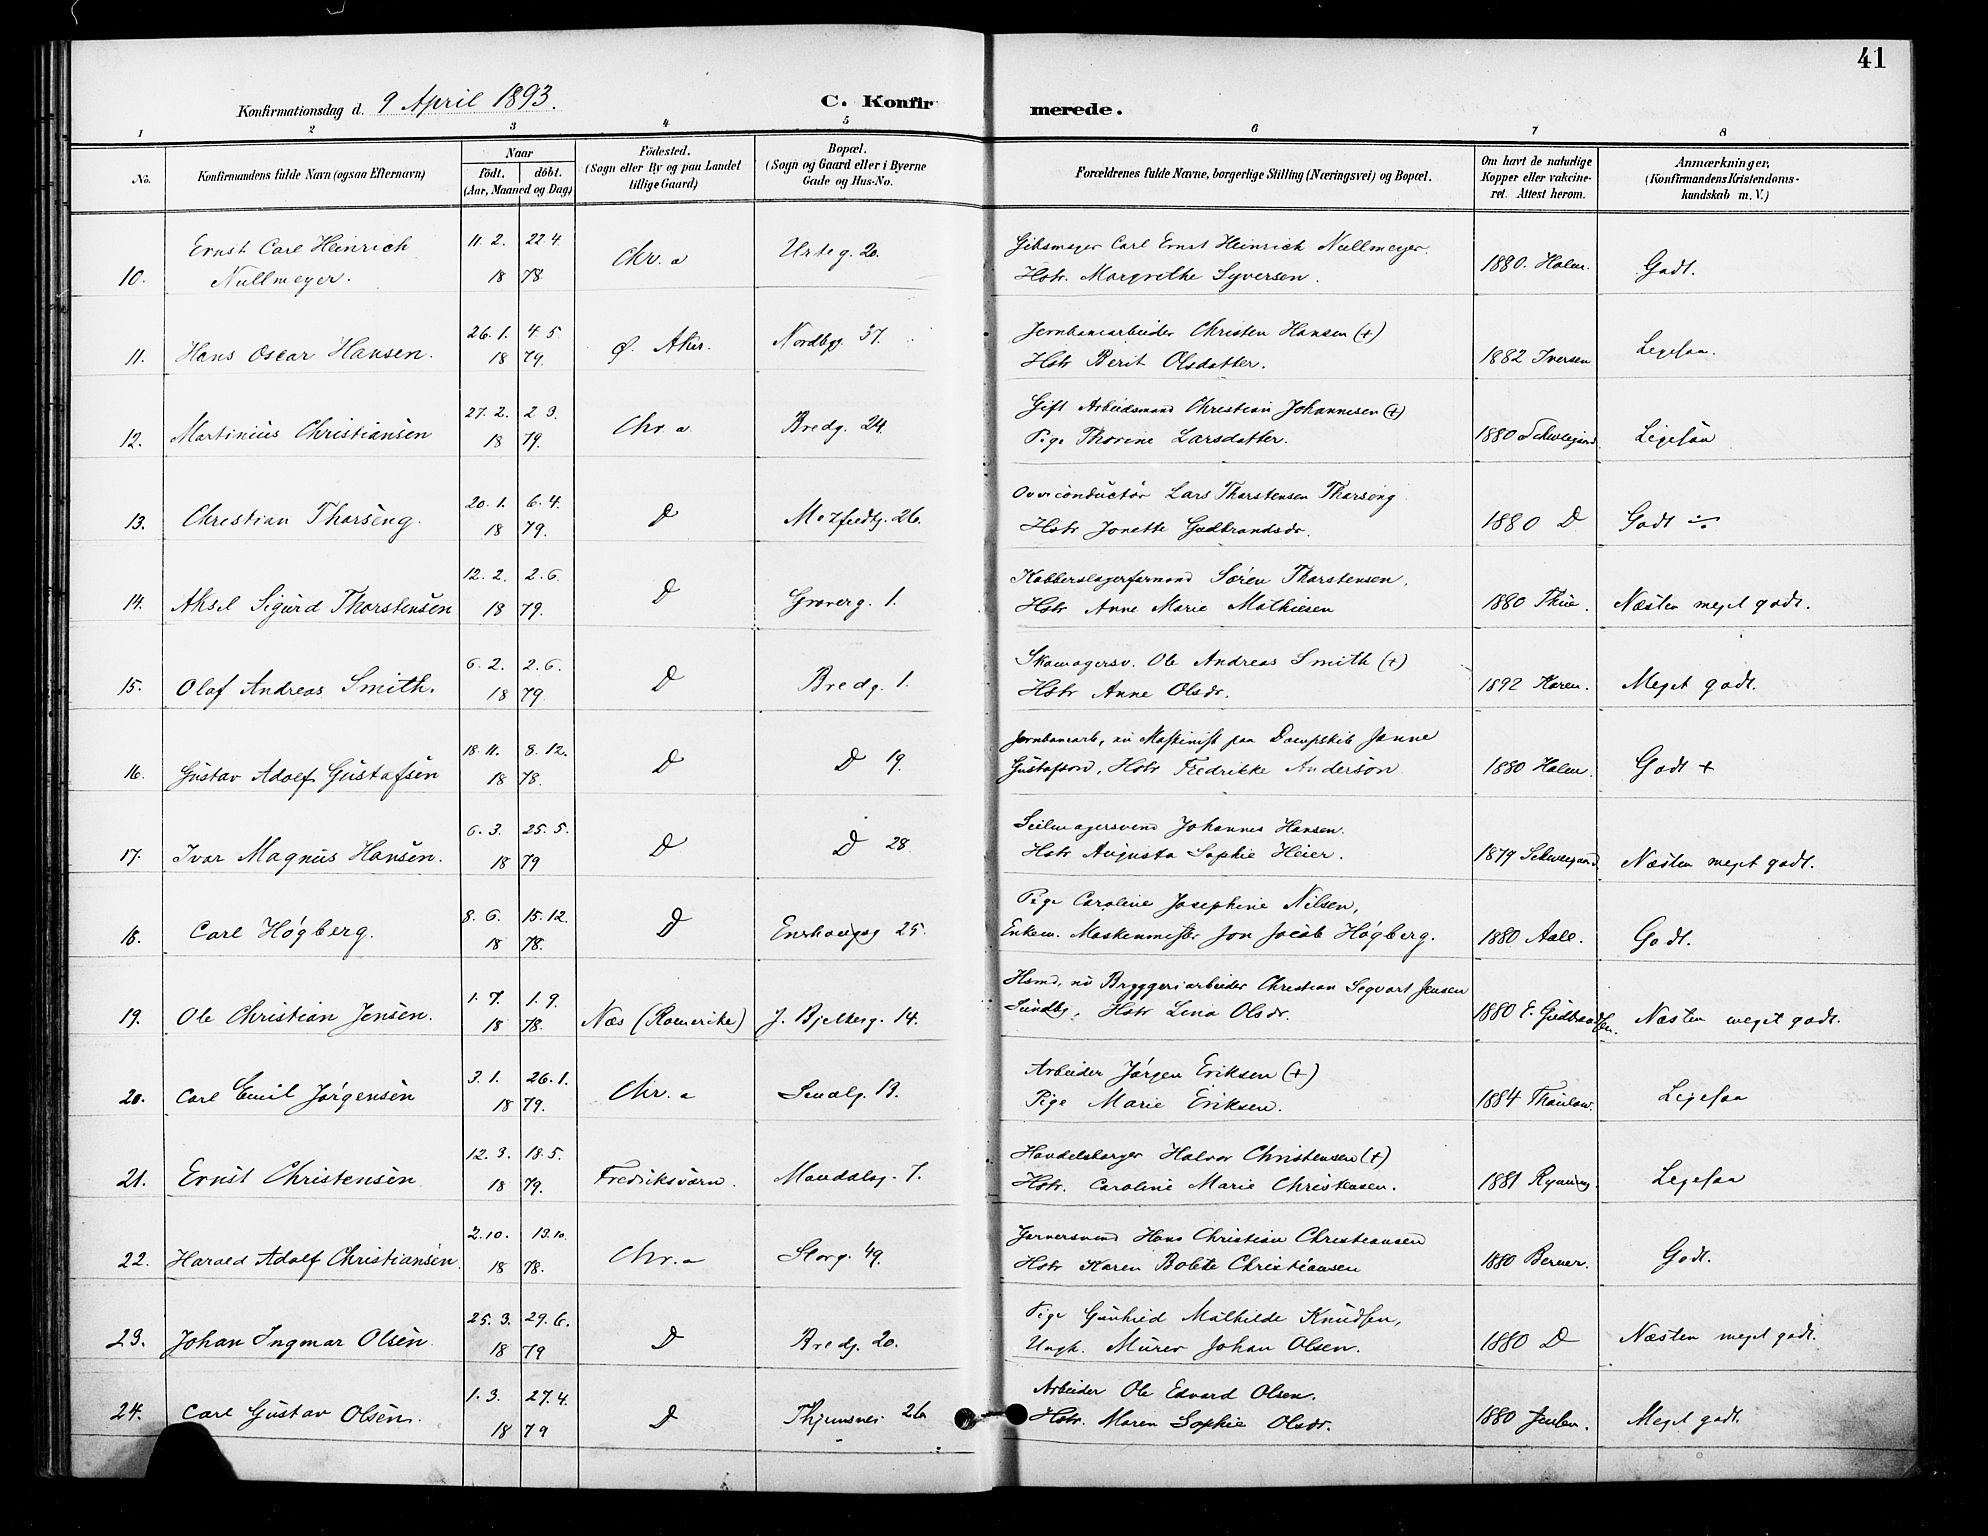 41
Konfirmationsdag d. 9 April 1893.
C. Konfirmerede.
1 2 3 4 5 6 7 8
No.
Konfirmandens fulde Navn (ogsaa Efternavn)
Naar
födt. döbt.
(Aar, Maaned og Dag)
Födested.
(Sogn eller By og paa Landet
tillige Gaard)
Bopæl.
(Sogn og Gaard eller i Byerne
Gade og Hus-No.
Forældrenes fulde Navne, borgerlige Stilling (Næringsvei) og Bopæl.
Om havt de naturlige
Kopper eller vakcine-
ret. Attest herom.
Anmærkninger,
(Konfirmandens Kristendoms-
kundskab m. V.)
Ernst Carl Heinrich 11. 2. 22. 4. Chr.a Urteg. 20. Gibsmager Carl Ernst Heinrich Nullmeyer.
10. Nullmeyer. 18 78 Hstr. Margrethe Syversen. 1880. Holm. Godt.
26. 1. 4 5 Jernbanearbeider Christen Hansen (+)
11. Hans Oscar Hansen. 18 79. Ø. Aker. Nordbyg. 37. Hstr Berit Olsdatter. 1882 Iversen Ligesaa.
27. 2. 2 3. Gift Arbeidsmand Christian Johannesen (+)
12. Martinius Christiansen 18 79. Chr. a Bredg. 24. Pige Thorine Larsdatter. 1880 Schweigaard Ligesaa
20. 1. 6. 4. Overconductør Lars Thorstensen Thorseng
13. Christian Thorseng. 18 79. D Motzfeldtg. 26. Hstr Jonette Gudbrandsdr. 1880 D Godt
12. 2. 2. 6. Kobberslagerformand Søren Thorstensen,
14. Aksel Sigurd Thorstensen 18 79. D Grønerg. 1. Hstr Anne Marie Mathiesen 1880 Thue. Næsten meget godt.
6. 2. 2. 6. Skomagersv. Ole Andreas Smith (+)
15. Olaf Andreas Smith. 18 79. D Bredg. 1. Hstr Anne Olsdr. 1892 Koren. Meget godt.
18. 11. 8. 12. Jernbanearb, nu Maskinist paa Dampskib Janne
16. Gustav Adolf Gustafsen 18 78. D D 19. Gustafson, Hstr Fredrikke Anderson 1880 Holm. Godt +
6. 3. 25. 5. Seilmagersvend Johannes Hansen.
17. Ivar Magnus Hansen. 18 79 D D 28. Hstr Augusta Sophie Heier. 1879 Schweigaard. Næsten meget godt.
8. 6. 15. 12. Pige Caroline Josephine Nilsen,
18. Carl Högberg. 18 78. D Enerhaugsg 25. Enkem. Maskenmester Jon Jacob Högberg. 1880 Aall. Godt.
1. 7. 1. 9. Hsmd, nu Bryggeriarbeider Christian Segvart Jensen
19. Ole Christian Jensen. 18 78. Næs (Romerike) J. Bjelkeg. 14. Sundby, Hstr Lena Olsdr. 1880 E. Gudbrandsen. Næsten meget godt.
3. 1. 26. 1. Arbeider Jørgen Eriksen (+)
20. Carl Emil Jørgensen 18 79. Chr. a Smalg. 13. Pige Marie Eriksen. 1884 Thaulow. Ligesaa
12. 3. 18. 5. Handelsborger Halvor Christensen (+)
21. Ernst Christensen 18 79. Fredriksværn. Mandalsg. 7. Hstr. Caroline Marie Christensen. 1881 Rynning. Ligesaa
2. 10. 13. 10. Garversvend Hans Christian Christiansen
22. Harald Adolf Christiansen. 18 78. Chr. a Storg. 49. Hstr Karen Bolete Christiansen 1880 Berner. Godt.
25. 3. 29. 6. Pige Gunhild Mathilde Knudsen,
23. Johan Ingmar Olsen. 18 79 D Bredg. 20. Ungk. Murer Johan Olsen. 1880 D Næsten meget godt.
1. 3. 27. 4. Arbeider Ole Edvard Olsen.
24. Carl Gustav Olsen. 18 79 D 26 Hstr. Maren Sophie Olsdr. 1880 Meget godt.